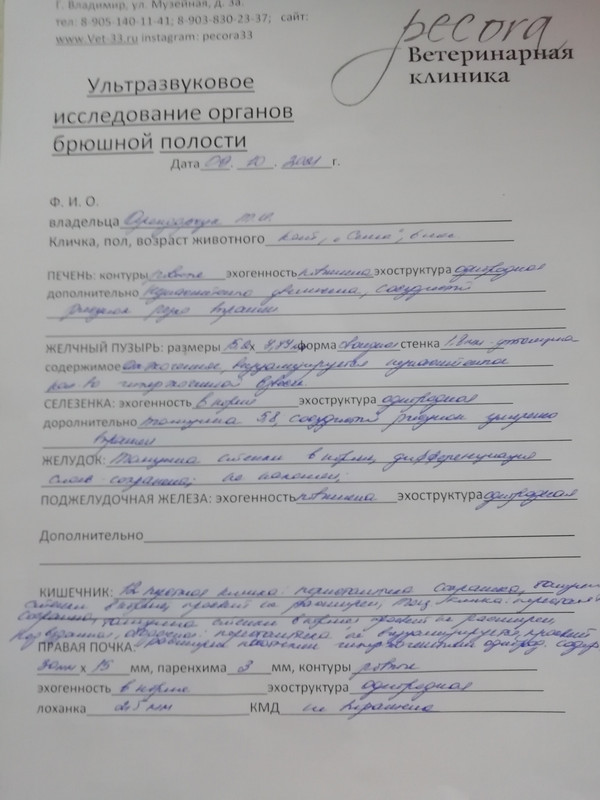 Г. Владимир, ул. Музейная, д. 3а.
тел: 8-905-140-11-41; 8-903-830-23-37; сайт:
www.Vet-33.ru instagram: pecora33
pecora
Ветеринарная
клиника
Ультразвуковое
исследование органов
брюшной полости
Дата 10. 2021 г.
Ф. И. О.
владельца
Кличка, пол, возраст животного кот,
ПЕЧЕНЬ: контуры ровные эхогенность повышена эхоструктура однородная
дополнительно незначительно увеличена, сосудистый
рисунок
ЖЕЛЧНЫЙ ПУЗЫРЬ: размеры форма стенка 1.8 мм - утолщена
содержимое визуализируется незначительное
кол-во гиперэхогенной взвеси
СЕЛЕЗЕНКА: эхогенность в норме эхоструктура однородная
дополнительно толщина 5.8, сосудистый рисунок умеренно
выражен
ЖЕЛУДОК: Толщина стенки в норме, дифференциация
слоев сохранена; не наполнен;
ПОДЖЕЛУДОЧНАЯ ЖЕЛЕЗА: эхогенность повышена эхоструктура однородная
Дополнительно
КИШЕЧНИК: 12 перстная кишка: перистальтика сохранена, толщина
стенки в норме, просвет не расширен, Тощ. кишка: перистальт.
сохранена, толщина стенки в норме просвет не расширен,
Подвздошная, ободочная: перистальтика не визуализируется, просвет
расширен
ПРАВАЯ ПОЧКА:
30 мм х 15 мм, паренхима 3 мм, контуры ровные
эхогенность в норме эхоструктура однородная
лоханка 2.5 мм КМД не выражена